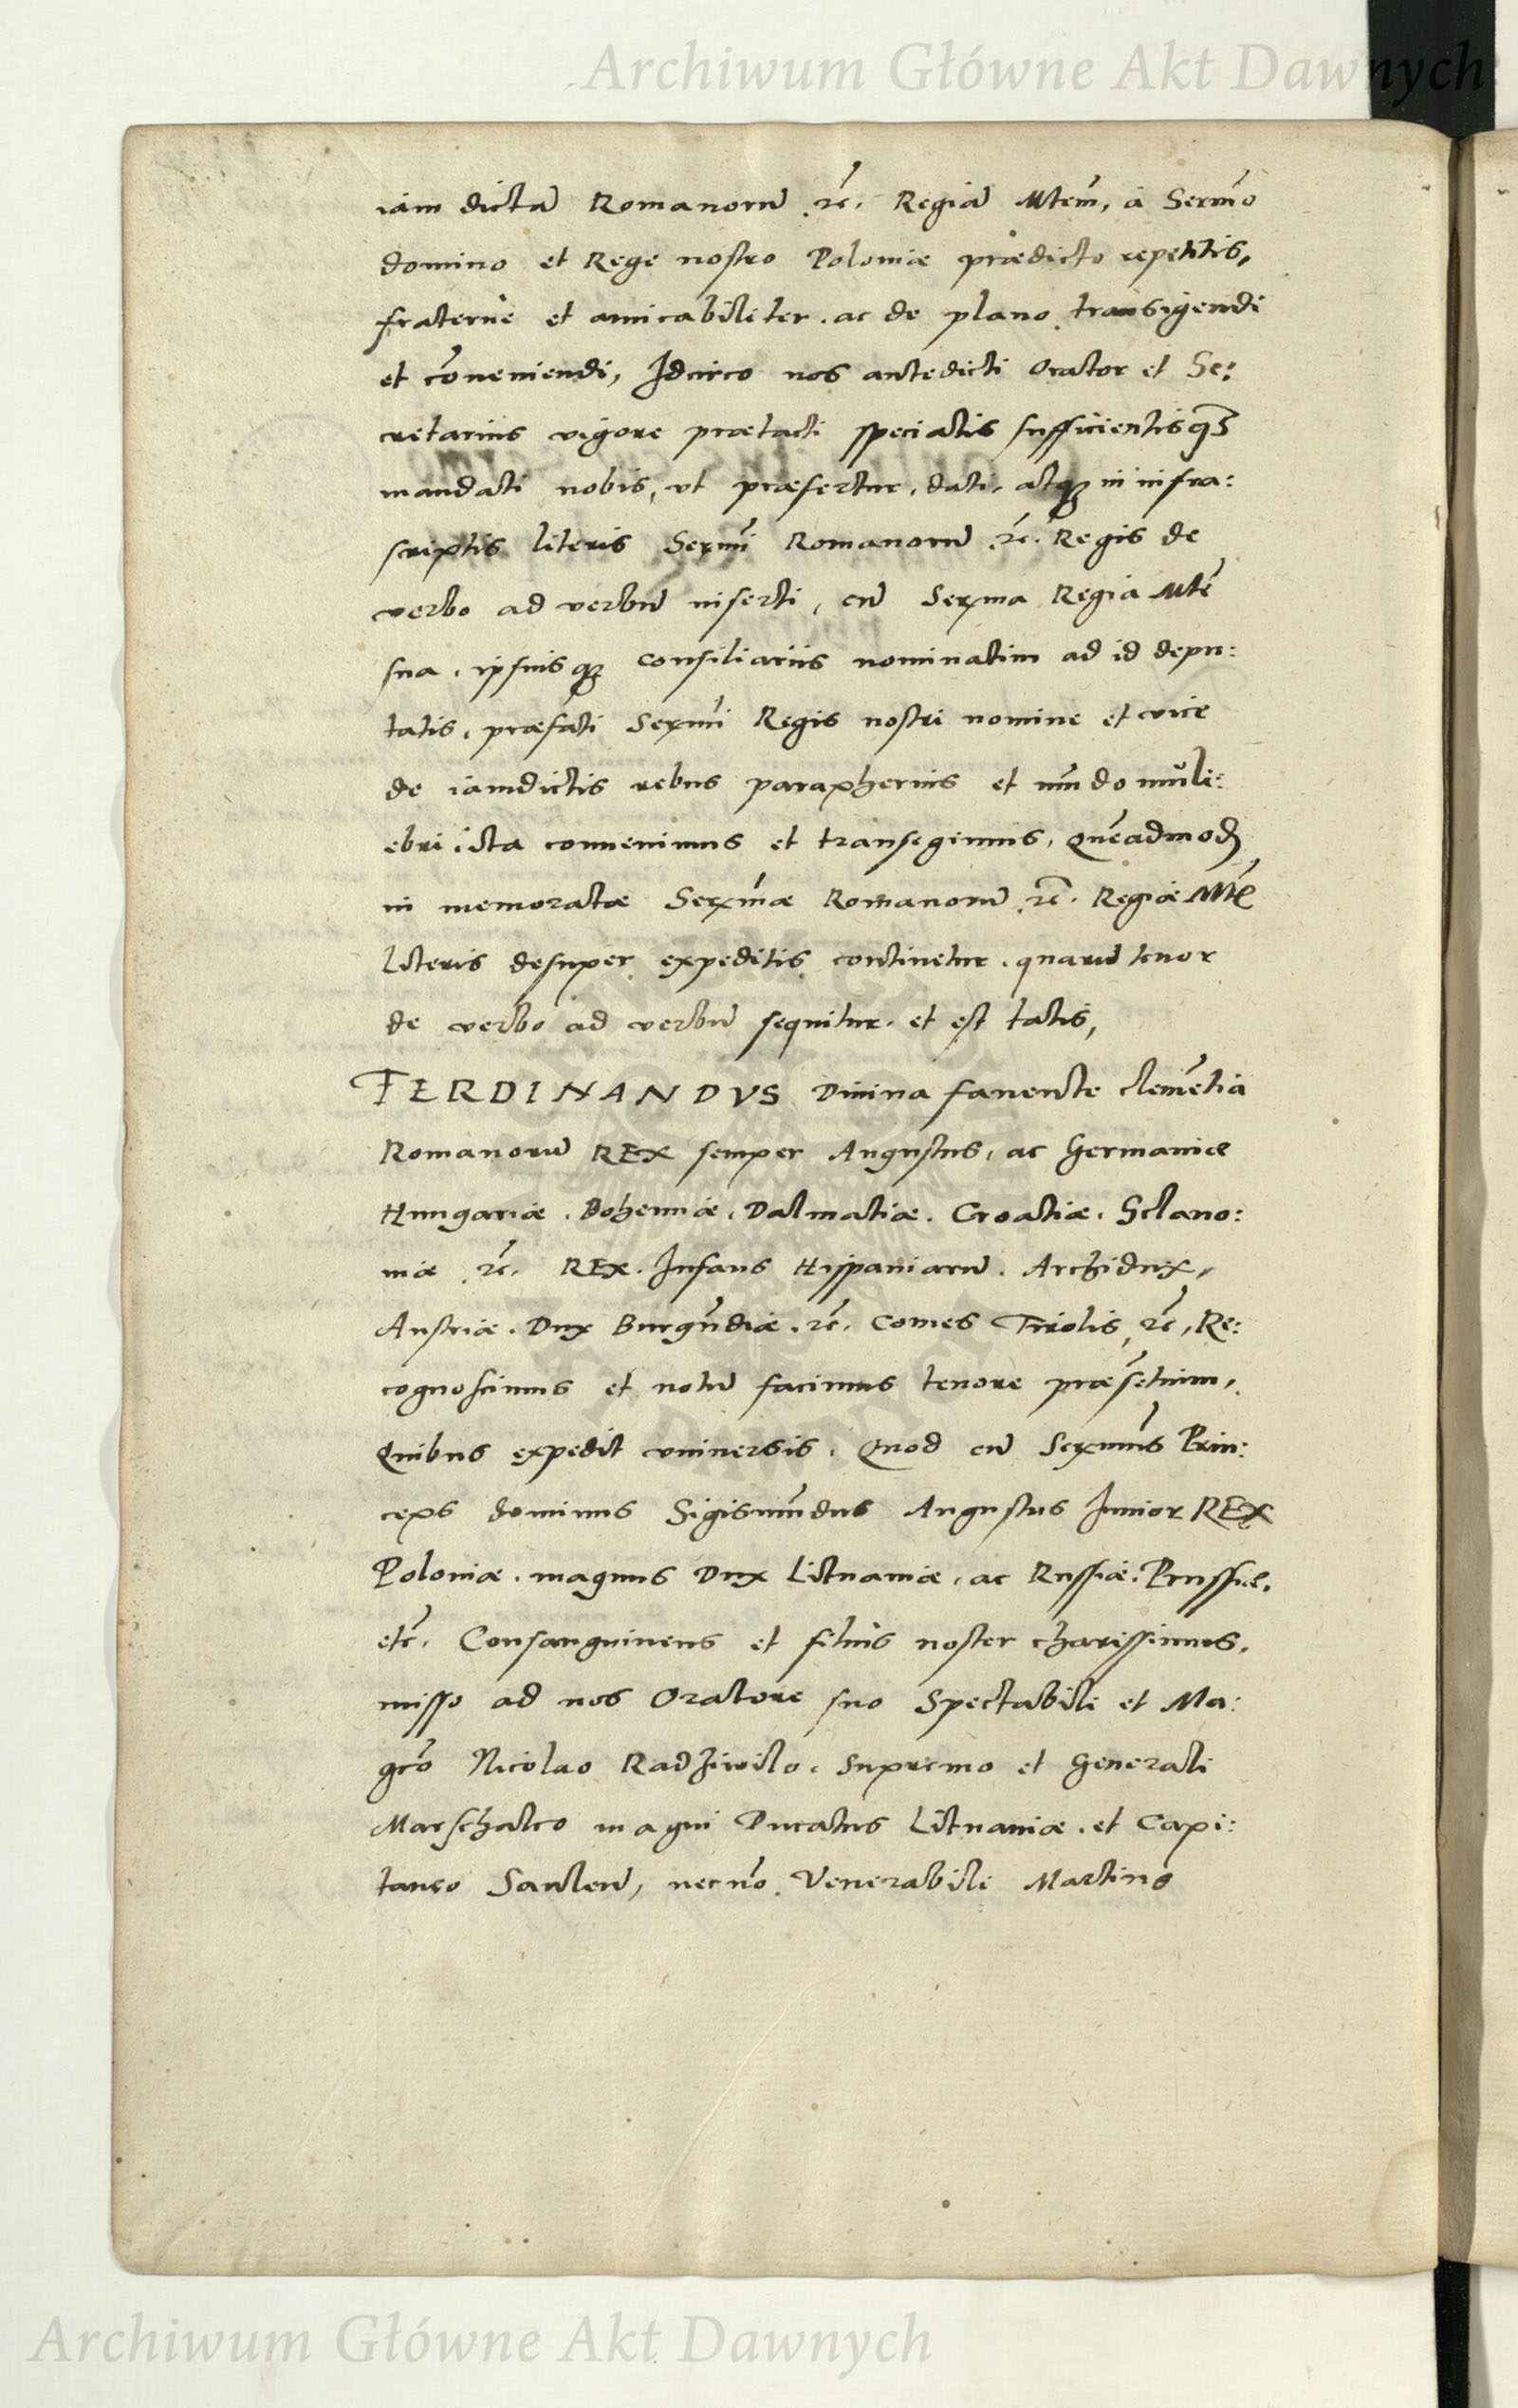 Archiwum Główne Akt Dawnych
iam dictā Romanorū ꝛc̄. Regiā Mtem̄, à Serm̄o
domino et Rege nostro Poloniæ prædicto repetitis,
fraternè et amicabiliter. ac de plano transigendi
et cōueniendi, Idcirco nos antedicti Orator et Se:
cretarius vigore prætacti specialis sufficientisq3
mandati nobis, vt præfertur, dati, atq3 in infra:
scriptis literis Serm̄i Romanorū ꝛc̄. Regis de
verbo ad verbū inserti, cū Serma Regia Mte
sua, ipsiusq3 consiliariis nominatim ad id depu:
tatis, præfati Serm̄i Regis nostri nomine et vice
de iamdictis rebus paraphernis et mūdo muli:
ebri ista conuenimus et transegimus, Quēadmodū
in memoratæ Serm̄æ Romanorū ꝛc̄. Regiæ Mtis̄
literis desuper expeditis continetur. quarū tenor
de verbo ad verbū sequitur. et est talis,
FERDINANDVS Diuina fauente clemētia
Romanorū REX semper Augustus, ac Germaniæ
Hungariæ. Bohemiæ. Dalmatiæ. Croatiæ. Sclauo:
niæ ꝛc̄. REX. Infans Hispaniarū. Archidux,
Austriæ. Dux Burgūdiæ. ꝛc̄. Comes Tirolis, ꝛc̄, Re:
cognoscimus et notū facimus tenore præsētium,
Quibus expedit vniuersis. Quod cū Serm̄us Prin:
ceps dominus Sigismūdus Augustus Iunior REX
Poloniæ. magnus Dux Lituaniæ, ac Russiæ. Prussiæ.
etc̄. Consanguineus et filius noster charissimus,
misso ad nos Oratore suo Spectabile et Ma:
gco̅ Nicolao Radziwilo. Supremo et Generali
Marschalco magni Ducatus Lituaniæ. et Capi:
taneo necnō Venerabili Martino
Archiwum Główne Akt Dawnych